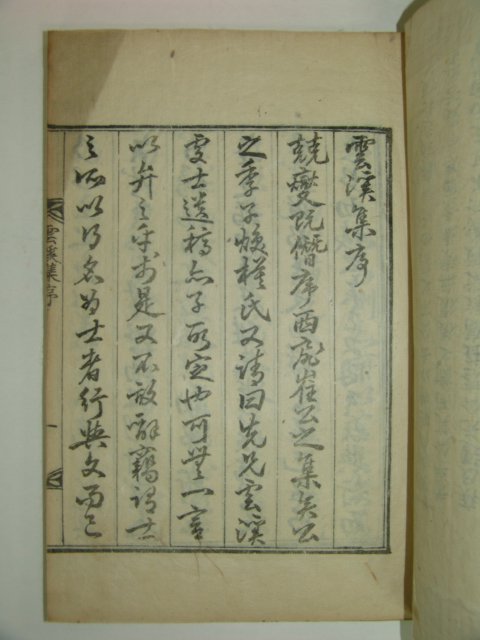 雲溪集序
兢燮旣僭序西亭崔公之集矣公
之季子煥模氏又請曰先兄雲溪
處士遺稿亦子所定也可無一言
以弁之乎於是又不敢辭竊謂士
之所以得名爲士者行與文而已
雲溪集序 一